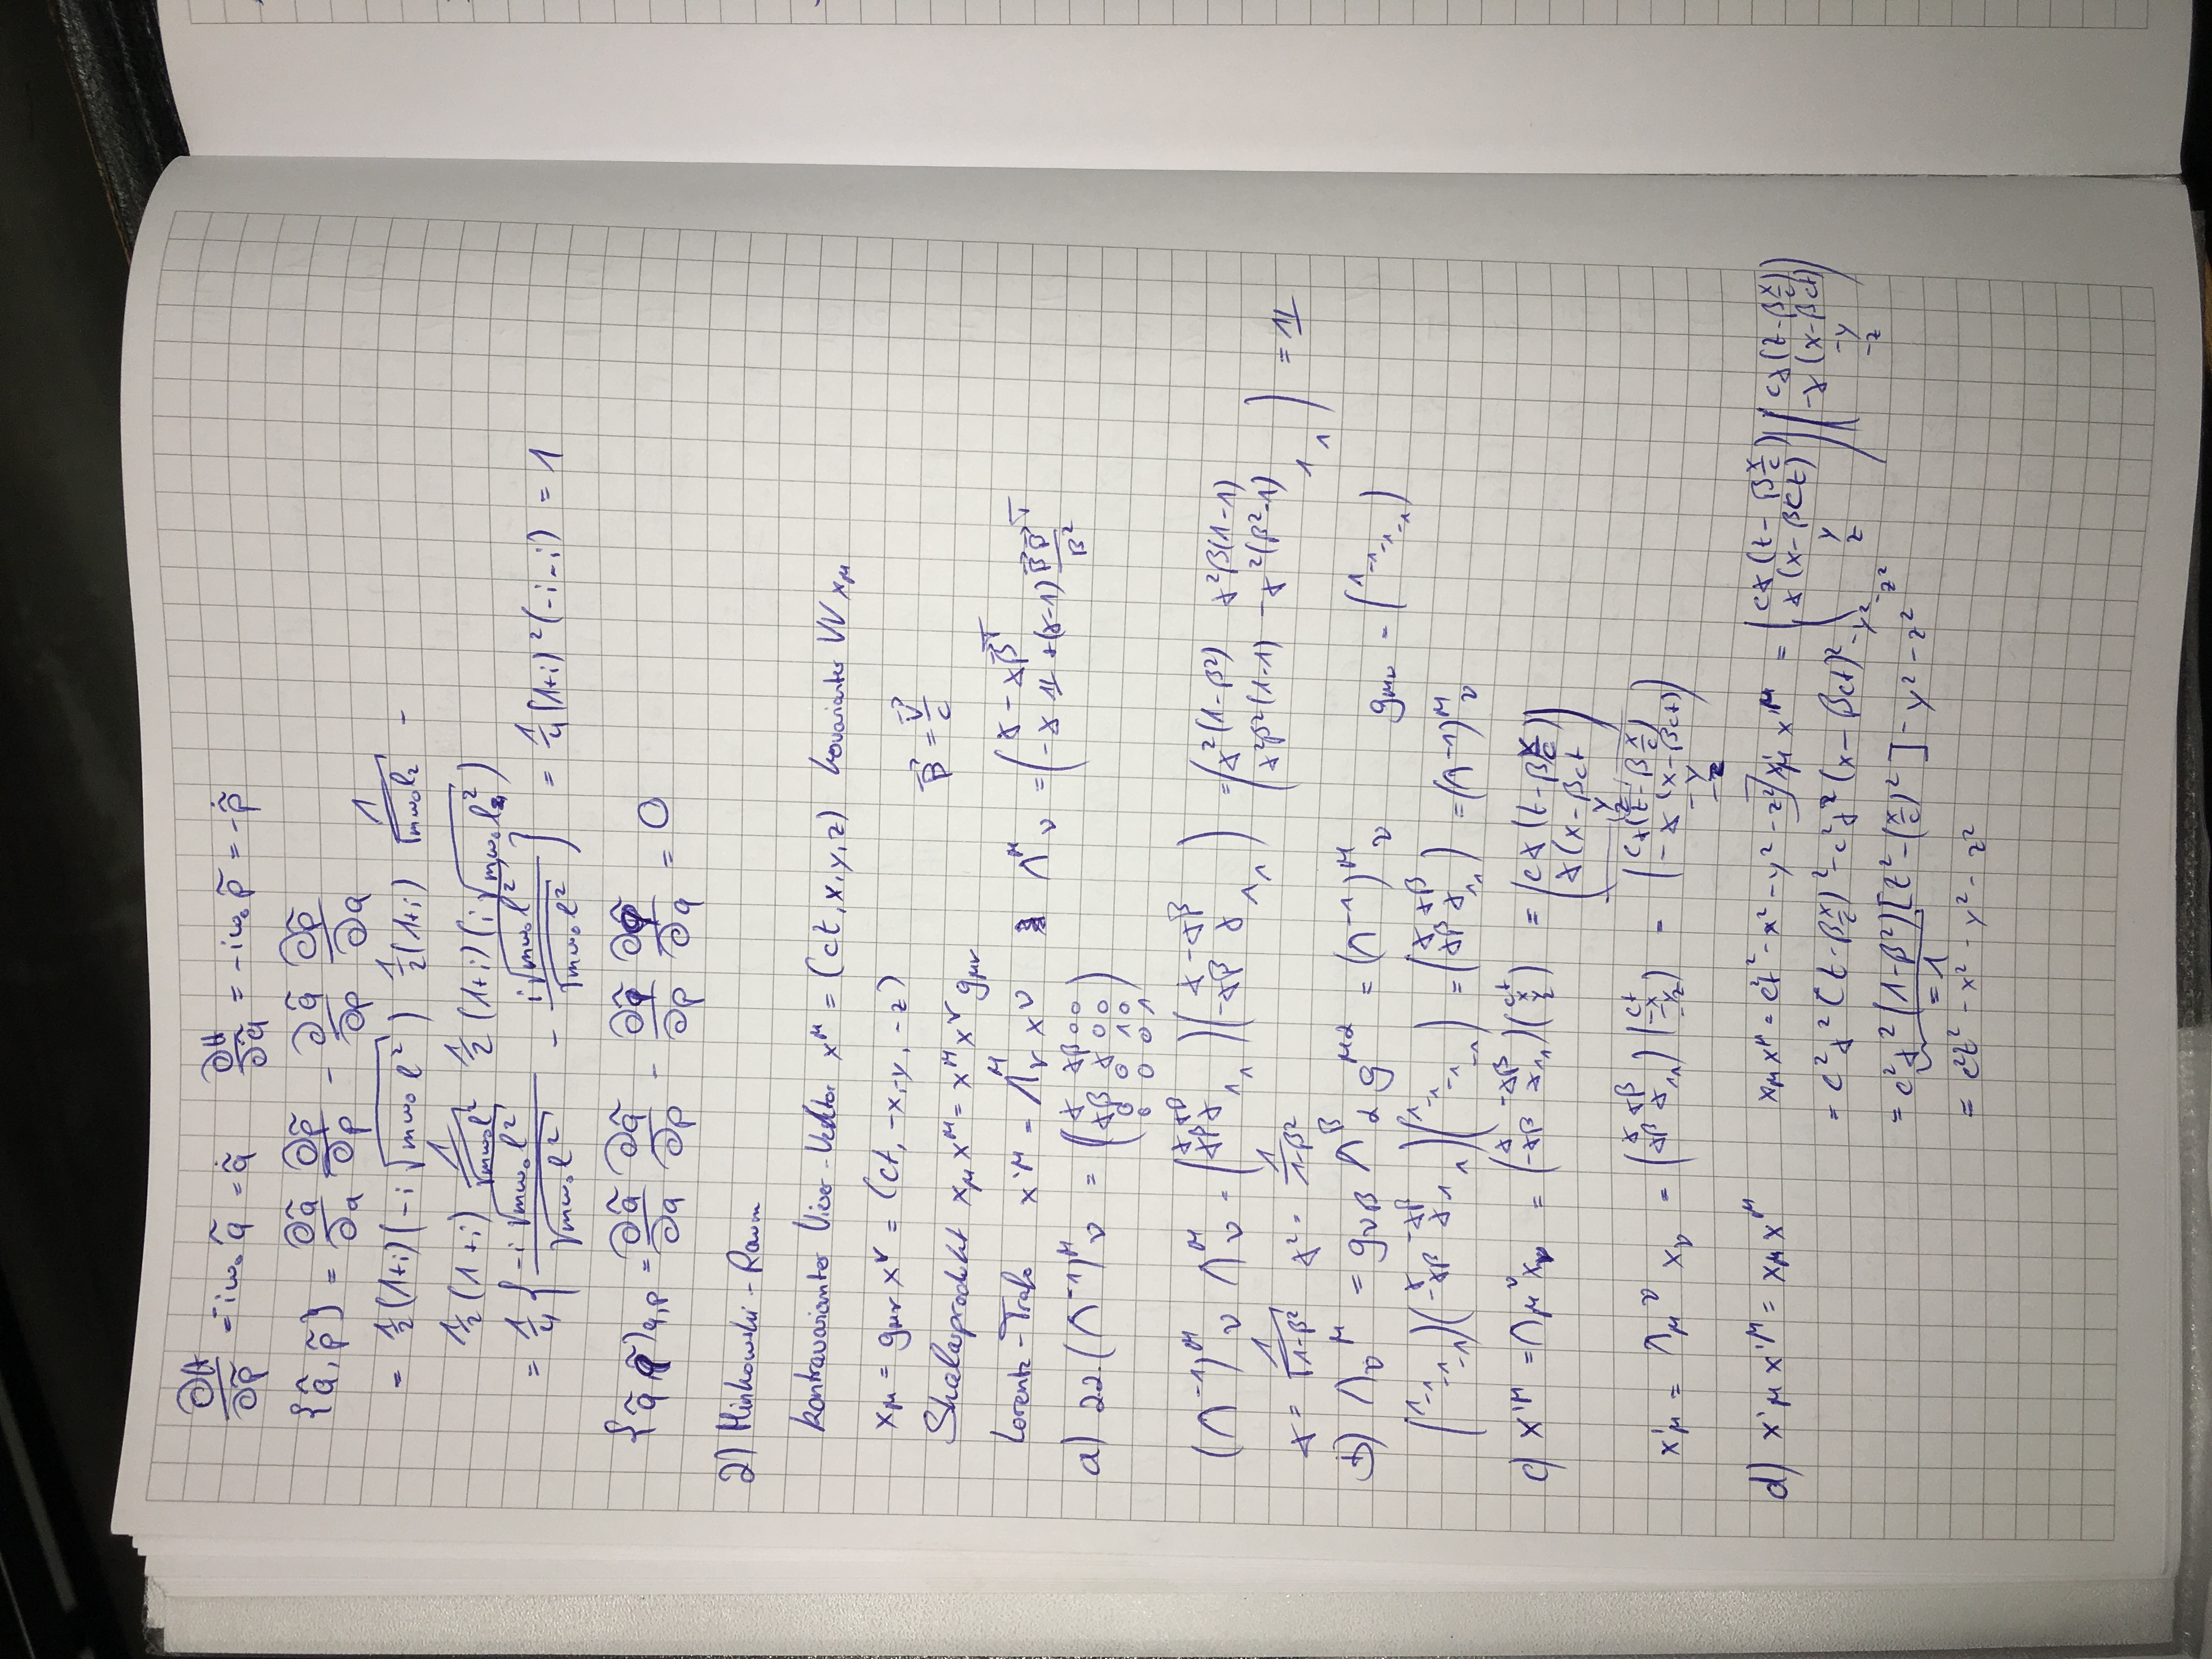 ∂H/∂p̃ = -iω₀ q̃ = q̃̇    ∂H/∂q̃ = -iω₀ p̃ = -p̃̇
{q̃, p̃} = ∂q̃/∂q ∂p̃/∂p - ∂q̃/∂p ∂p̃/∂q
= ½(1+i)(-i√(mω₀l²)) ½(1+i) 1/√(mω₀l²) -
½(1+i) 1/√(mω₀l²) ½(1+i)(i√(mω₀l²))
= ¼{ -i√(mω₀l²)/√(mω₀l²) - i√(mω₀l²)/√(mω₀l²) ] = ¼(1+i)²(-i-i) = 1
{q̃ q̃}q,p = ∂q̃/∂q ∂q̃/∂p - ∂q̃/∂p ∂q̃/∂q = 0
2) Minkowski-Raum
kontravarianter Vierer-Vektor x^μ = (ct, x, y, z) kovarianter VV x_μ
x_μ = g_μν x^ν = (ct, -x, -y, -z)
β⃗ = v⃗/c
Skalarprodukt x_μ x^μ = x^μ x^ν g_μν
Lorentz-Trafo x'^μ = Λ^μ_ν x^ν    Λ^μ_ν = (γ -γβ⃗^T ; -γ 𝟙 + (γ-1) β⃗β⃗^T/β²)
a) zz. (Λ^-1)^μ_ν = (γ γβ 0 0 ; γβ γ 0 0 ; 0 0 1 0 ; 0 0 0 1)
(Λ^-1)^μ_ν Λ^μ_ν = (γ γβ ; γβ γ ; 1 ; 1)(γ -γβ ; -γβ γ ; 1 ; 1) = (γ²(1-β²) γ²β(1-1) ; γ²β²(1-1) -γ²(β²-1) ; 1 ; 1) = 𝟙
γ = 1/√(1-β²)  γ² = 1/(1-β²)
b) Λ_ν^μ = g_νβ Λ^β_α g^μα = (Λ^-1)^μ_ν    g_μν = (1 -1 -1 -1)
(1 -1 -1 -1)(γ -γβ ; -γβ γ ; 1 ; 1)(1 -1 -1 -1) = (γ γβ ; γβ γ ; 1 1) = (Λ^-1)^μ_ν
c) x'^μ = Λ_μ^ν x_ν = (γ -γβ ; -γβ γ ; 1 1)(ct ; x ; y ; z) = (cγ(t-β x/c) ; γ(x-βct ; y ; z)
x'_μ = Λ_μ^ν x_ν = (γ γβ ; γβ γ ; 1 1)(ct ; -x ; -y ; -z) = (cγ(t-β x/c) ; -γ(x-βct) ; -y ; -z)
d) x'_μ x'^μ = x_μ x^μ    x_μ x^μ = c²t² - x² - y² - z²] x'_μ x'^μ = (cγ(t-β x/c) ; γ(x-βct) ; y ; z)(cγ(t-β x/c) ; -γ(x-βct) ; -y ; -z)
= c²γ²(t-β x/c)² - c²γ²(x-βct)² - y² - z²
= c²γ²(1-β²)[t² - (x/c)²] - y² - z²
= 1
= c²t² - x² - y² - z²